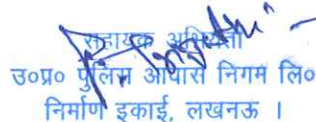 सहायक अभियंता
उ०प्र० पुलिस आवास निगम लि०
निर्माण इकाई, लखनऊ ।